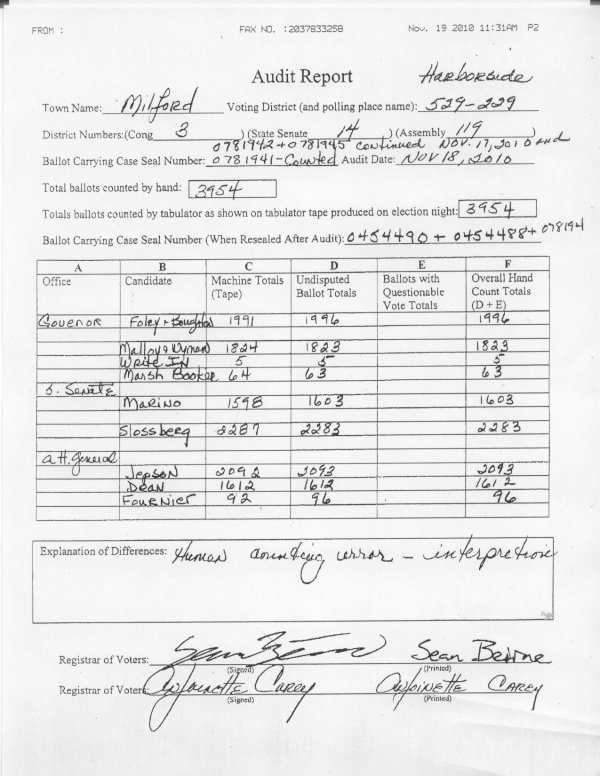 FROM : FAX NO. :2037833258 Nov. 19 2010 11:31AM P2
Audit Report Harborside
Town Name: Milford Voting District (and polling place name): 529-229
District Numbers:(Cong 3 ) (State Senate 14 ) (Assembly 119 )
0781942 + 0781945 continued Nov. 17, 2010 and
Ballot Carrying Case Seal Number: 0781941-Counted Audit Date: Nov 18, 2010
Total ballots counted by hand: 3954
Totals ballots counted by tabulator as shown on tabulator tape produced on election night: 3954
Ballot Carrying Case Seal Number (When Resealed After Audit): 0454490 + 0454488 + 078194
A B C D E F
Office Candidate Machine Totals (Tape) Undisputed Ballot Totals Ballots with Questionable Vote Totals Overall Hand Count Totals (D + E)
Govenor Foley + Boughton 1991 1996 1996
Malloy & Wyman 1824 1823 1823
Write IN 5 5 5
Marsh Booker 64 63 63
S. Senate
Marino 1598 1603 1603
Slossberg 2287 2283 2283
att. General
Jepson 2092 2093 2093
Dean 1612 1612 1612
Fournier 92 96 96
Explanation of Differences: Human counting error - interpretion
Registrar of Voters: Sean Beirne
(Signed) (Printed)
Registrar of Voters: Antoinette Carey Antoinette Carey
(Signed) (Printed)